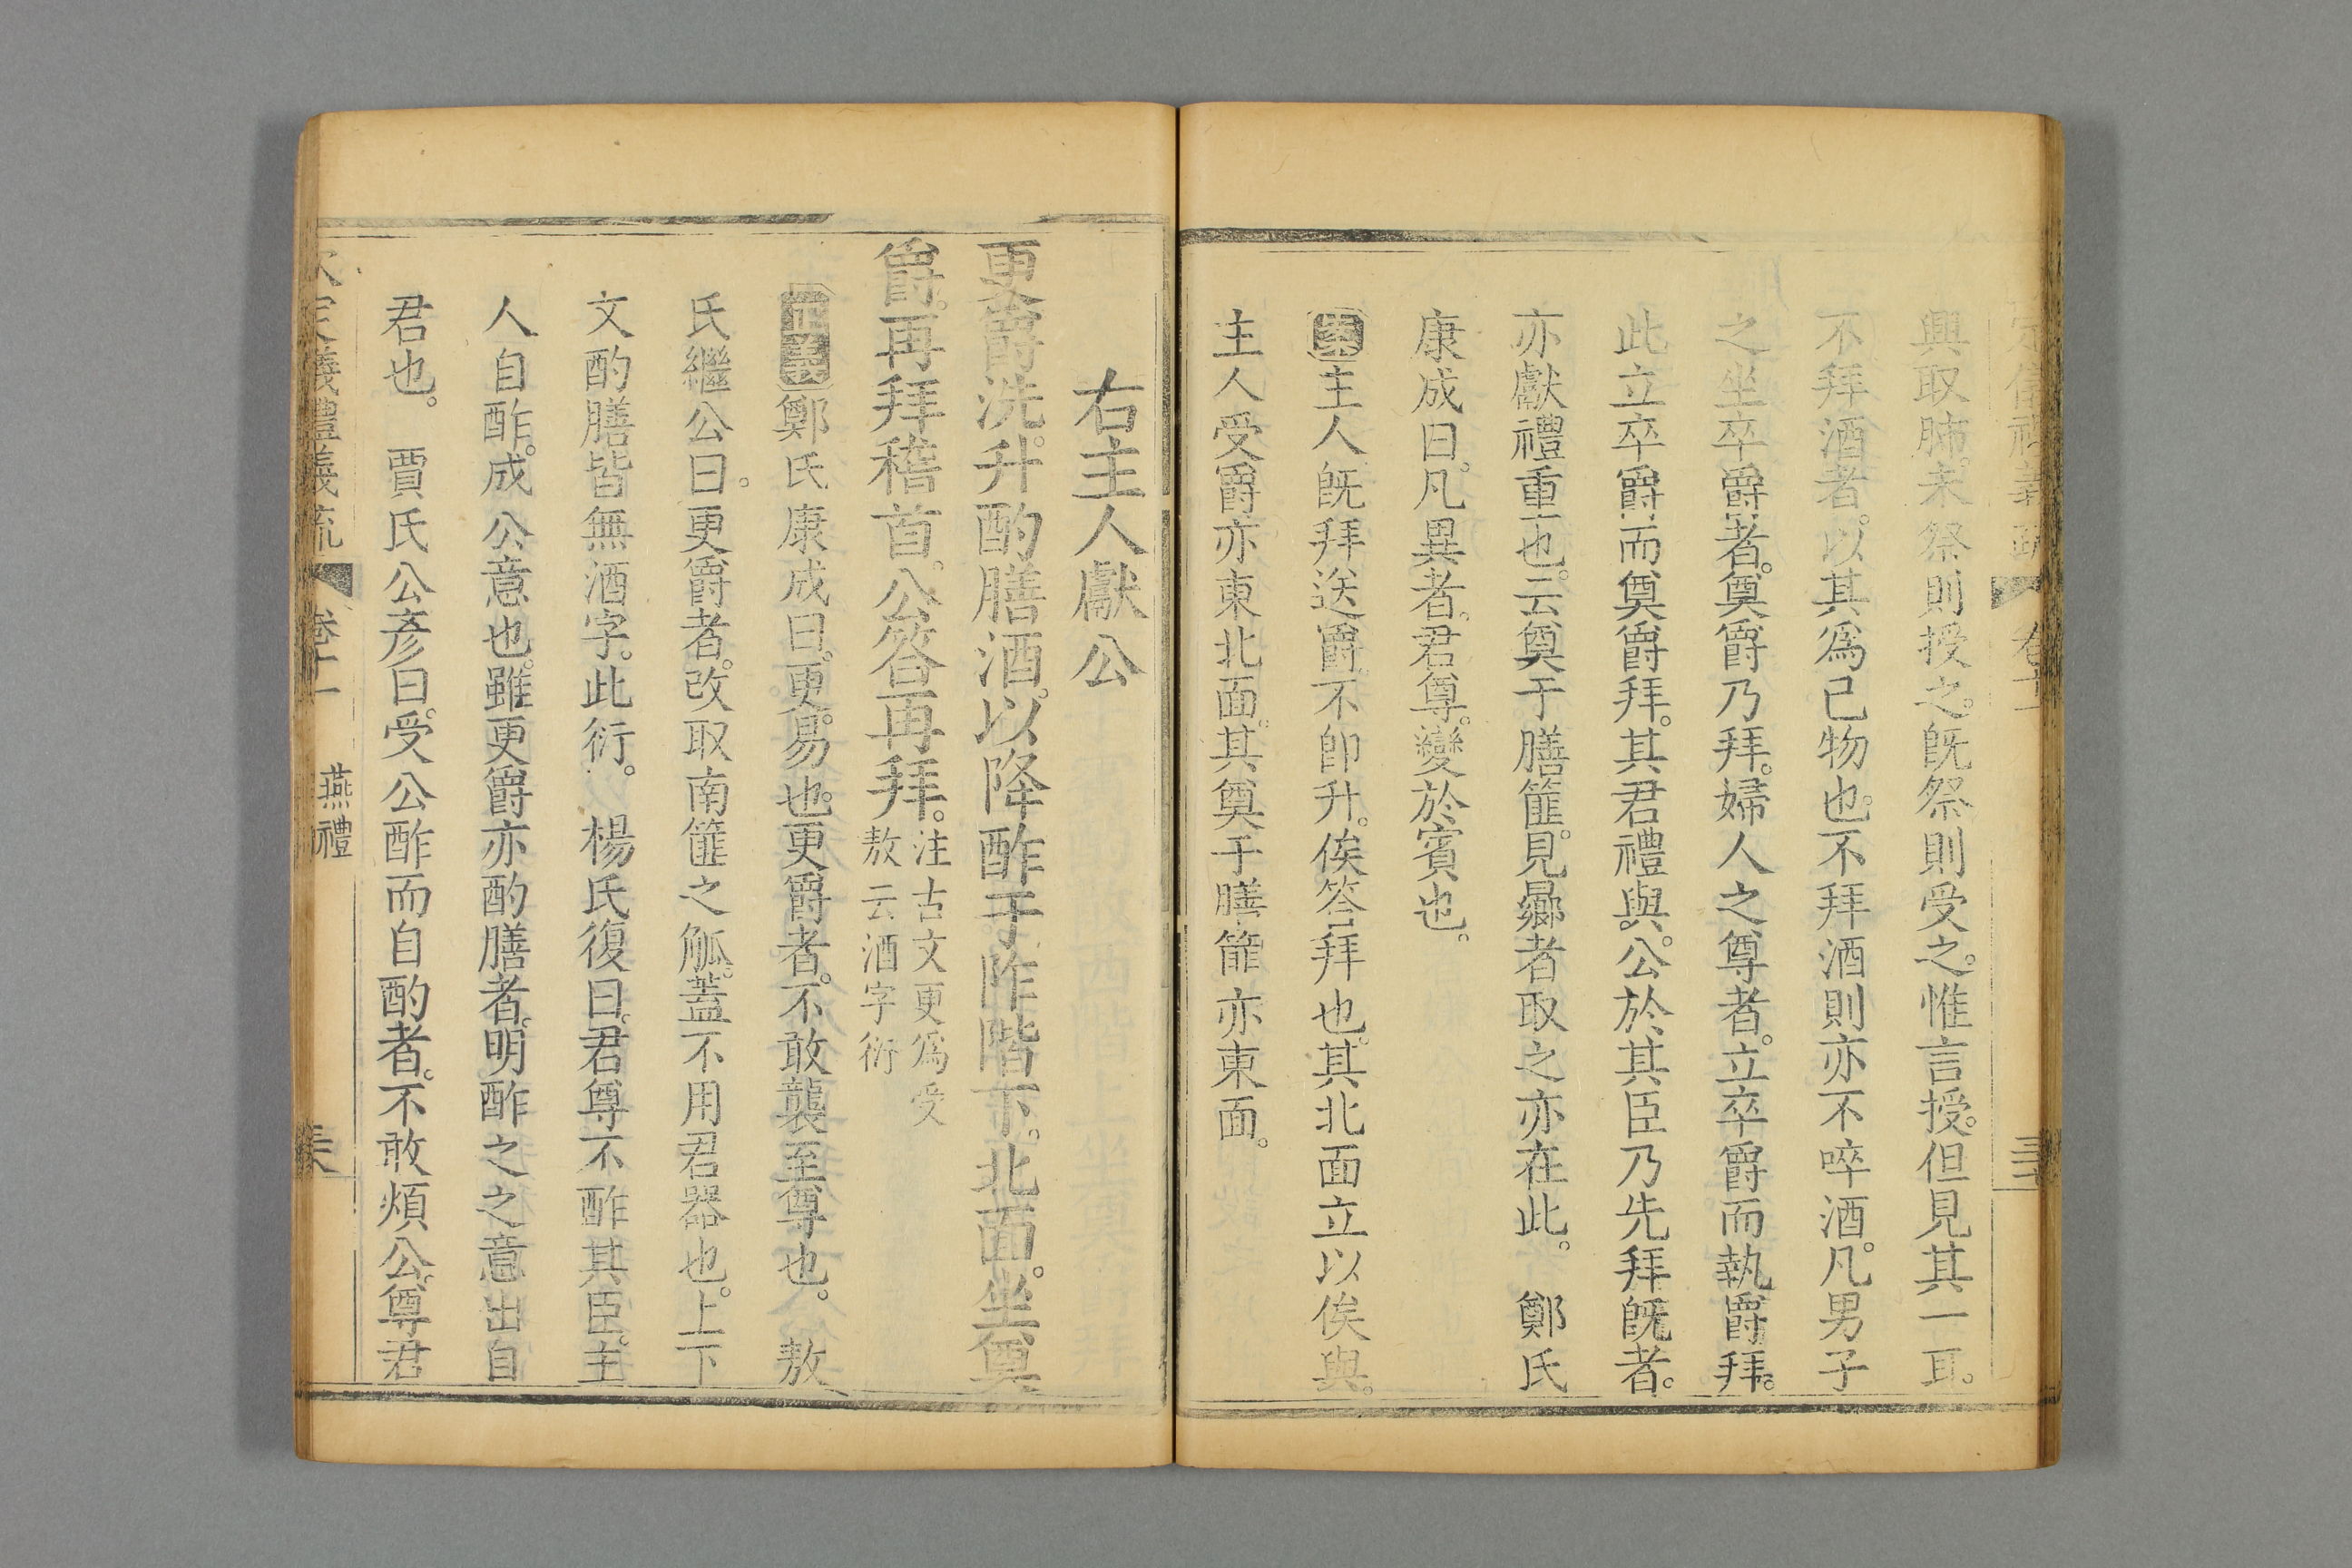 興取肺。未祭則授之。旣祭則受之。惟言授。但見其一耳。
不拜酒者。以其爲己物也。不拜酒則亦不啐酒。凡男子
之坐卒爵者。奠爵乃拜。婦人之尊者。立卒爵而執爵拜。
此立卒爵而奠爵拜。其君禮與。公於其臣乃先拜旣者。
亦獻禮重也。云奠于膳篚。見曏者取之亦在此。 鄭氏
康成曰。凡異者。君尊。變於賓也。
案主人旣拜送爵不卽升。俟答拜也。其北面立以俟與。
主人受爵亦東北面。其奠于膳篚亦東面。
右主人獻公
更爵洗。升酌膳酒。以降酢于阼階下。北面。坐奠
爵。再拜稽首。公答再拜。注古文更爲受
敖云酒字衍
正義鄭氏康成曰。更。易也。更爵者。不敢襲至尊也。 敖
氏繼公曰。更爵者。改取南篚之觚。蓋不用君器也。上下
文酌膳皆無酒字。此衍。 楊氏復曰。君尊不酢其臣。主
人自酢。成公意也。雖更爵亦酌膳者。明酢之之意出自
君也。 賈氏公彥曰。受公酢而自酌者。不敢煩公。尊君
儀禮義疏 卷十一 燕禮